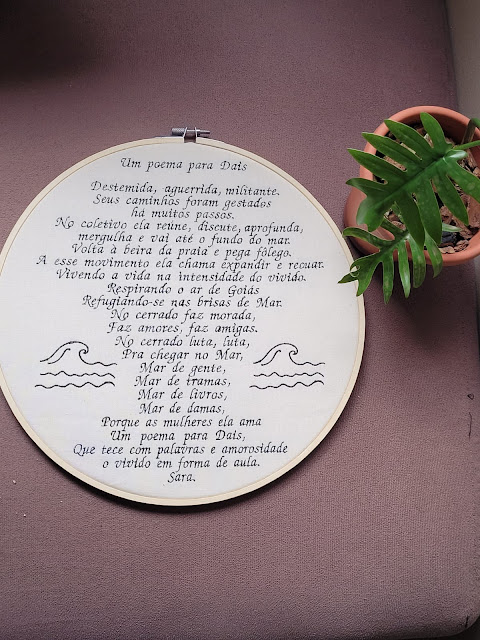 Um poema para Dais
Destemida, aguerrida, militante.
Seus caminhos foram gestados
há muitos passos.
No coletivo ela reúne, discute, aprofunda,
mergulha e vai até o fundo do mar.
Volta à beira da praia e pega fôlego.
A esse movimento ela chama expandir e recuar.
Vivendo a vida na intensidade do vivido.
Respirando o ar de Goiás
Refugiando-se nas brisas de Mar.
No cerrado faz morada,
Faz amores, faz amigas.
No cerrado luta, luta,
Pra chegar no Mar,
Mar de gente,
Mar de tramas,
Mar de livros,
Mar de damas,
Porque as mulheres ela ama
Um poema para Dais,
Que tece com palavras e amorosidade
o vivido em forma de aula.
Sara.